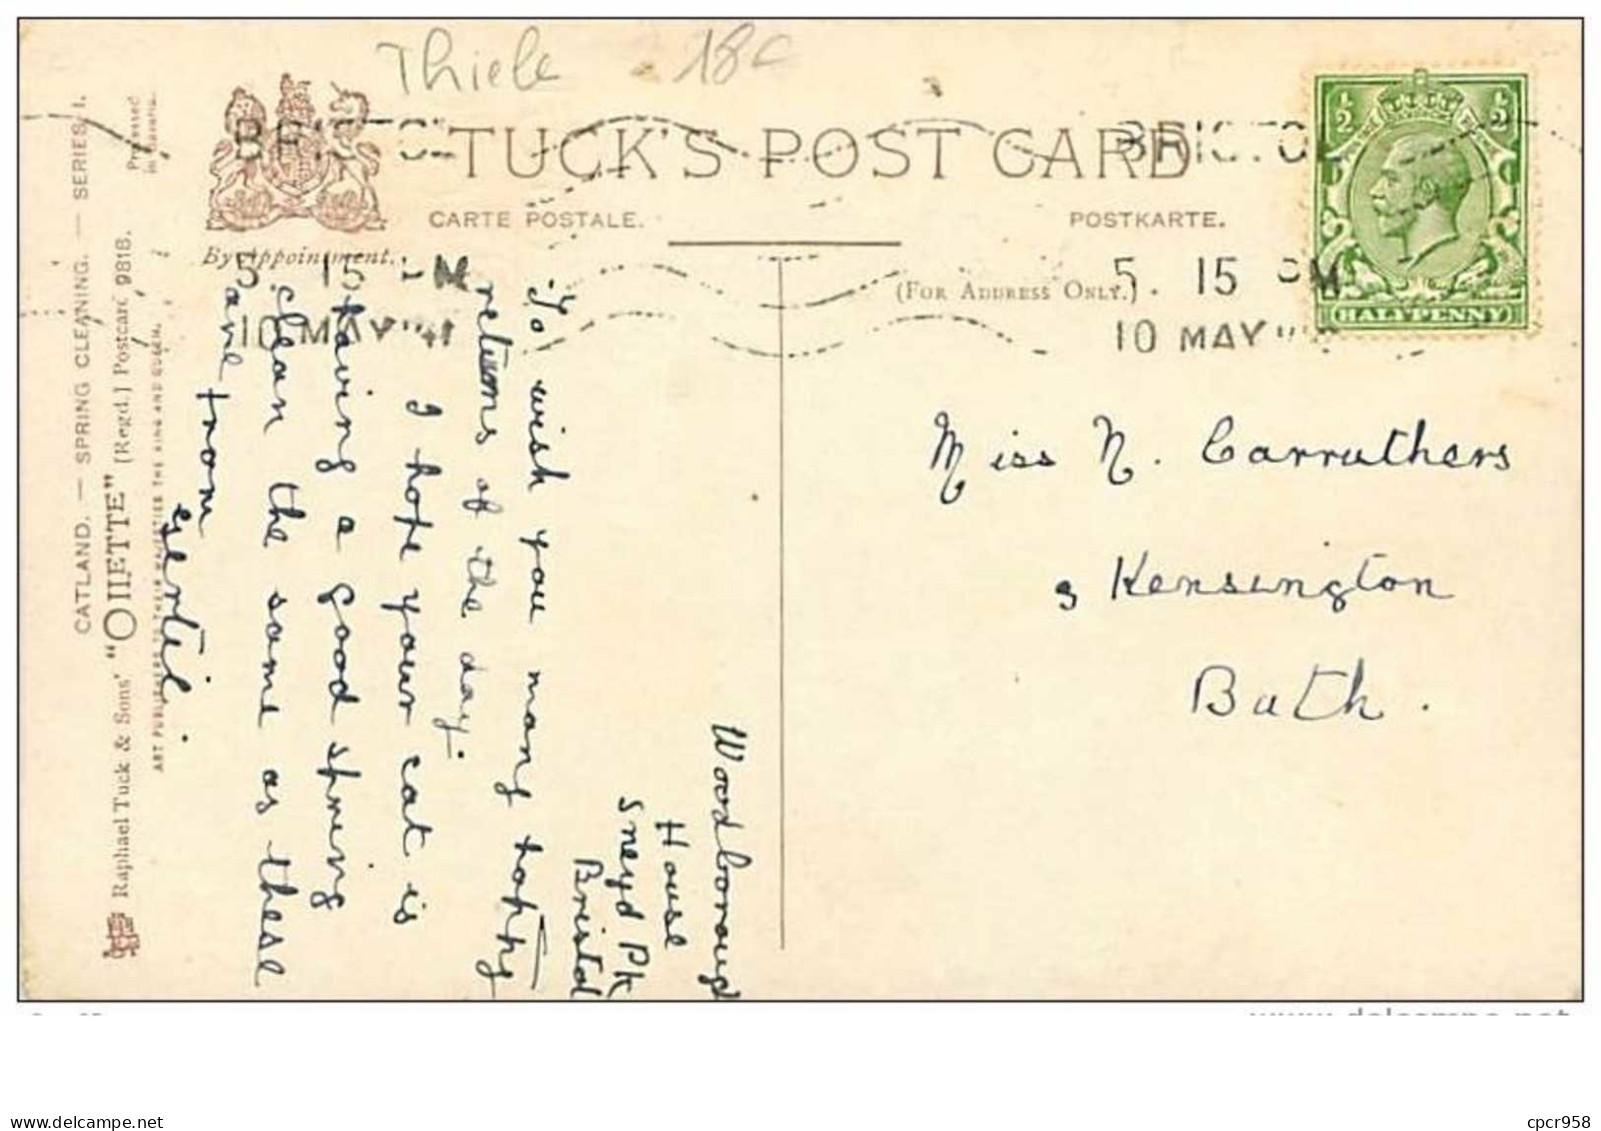 Thiele 18c
BRISTOL
TUCK'S POST CARD
BRISTOL
CARTE POSTALE.
POSTKARTE.
By Appointment.
(FOR ADDRESS ONLY.)
5 15 PM
10 MAY
5. 15 PM
10 MAY
HALFPENNY
CATLAND. — SPRING CLEANING. — SERIES I.
Raphael Tuck & Sons' "OILETTE" [Regd.] Postcard 9818.
ART PUBLISHERS TO THEIR MAJESTIES THE KING AND QUEEN.
Processed
in Saxony.
Woodborough
House
Sneyd Pk
Bristol
To wish you many happy
returns of the day.
I hope your cat is
having a good spring
clean the same as these
are from
Miss N. Carruthers
9 Kensington
Bath.
cpcr958
https://www.delcampe.net